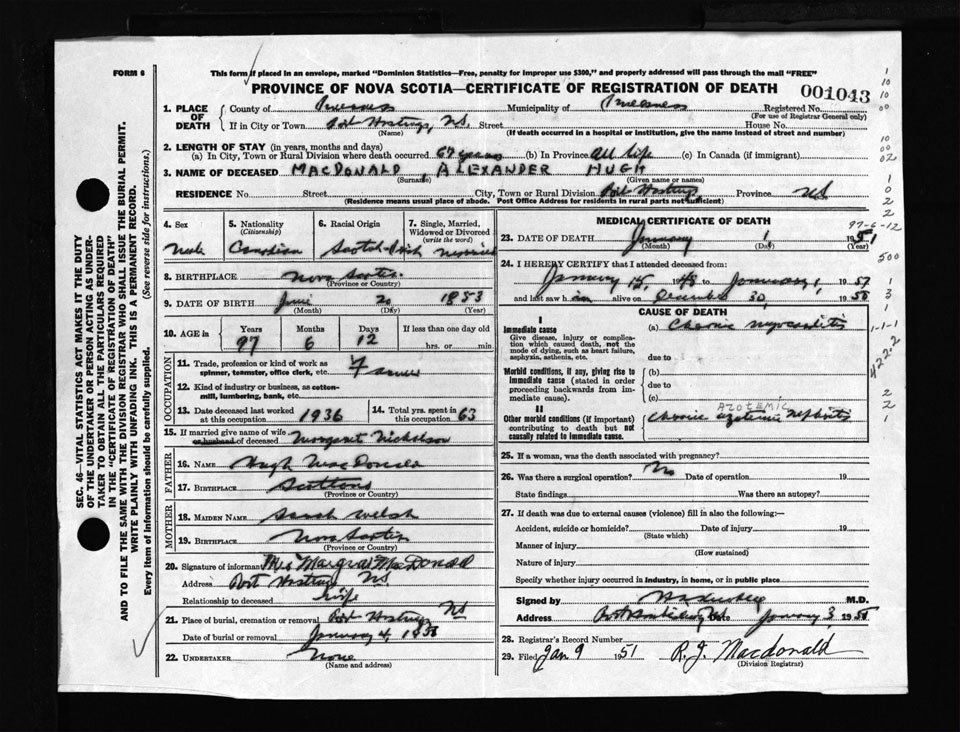 FORM 6
This form if placed in an envelope, marked "Dominion Statistics—Free, penalty for improper use $300," and properly addressed will pass through the mail "FREE"
PROVINCE OF NOVA SCOTIA—CERTIFICATE OF REGISTRATION OF DEATH
001043
1. PLACE OF DEATH
County of Inverness Municipality of Inverness Registered No.
(For use of Registrar General only)
If in City or Town Port Hastings, N.S. Street House No.
(Name) (If death occurred in a hospital or institution, give the name instead of street and number)
2. LENGTH OF STAY (in years, months and days)
(a) In City, Town or Rural Division where death occurred 67 years (b) In Province All life (c) In Canada (if immigrant)
3. NAME OF DECEASED MACDONALD, ALEXANDER HUGH
(Surname) (Given name or names)
RESIDENCE No. Street City, Town or Rural Division Port Hastings Province N.S.
(Residence means usual place of abode. Post Office Address for residents in rural parts not sufficient)
4. Sex 5. Nationality (Citizenship) 6. Racial Origin 7. Single, Married, Widowed or Divorced (write the word)
Male Canadian Scotch-Irish Married
8. BIRTHPLACE Nova Scotia
(Province or Country)
9. DATE OF BIRTH June 20 1853
(Month) (Day) (Year)
10. AGE in Years Months Days If less than one day old
97 6 12 hrs. or min.
OCCUPATION
11. Trade, profession or kind of work as spinner, teamster, office clerk, etc. Farmer
12. Kind of industry or business, as cotton-mill, lumbering, bank, etc.
13. Date deceased last worked at this occupation 1936
14. Total yrs. spent in this occupation 63
15. If married give name of wife or husband of deceased Margaret Nicholson
FATHER
16. NAME Hugh MacDonald
17. BIRTHPLACE Scotland
(Province or Country)
MOTHER
18. MAIDEN NAME Sarah Welsh
19. BIRTHPLACE Nova Scotia
(Province or Country)
20. Signature of informant Mrs Margret MacDonald
Address Port Hastings N.S.
Relationship to deceased wife
21. Place of burial, cremation or removal Port Hastings N.S.
Date of burial or removal January 4, 195
22. UNDERTAKER None
(Name and address)
MEDICAL CERTIFICATE OF DEATH
23. DATE OF DEATH January 1 1951
(Month) (Day) (Year)
97-6-12
24. I HEREBY CERTIFY that I attended deceased from:
January 15, 1948 to January 1, 195
and last saw him alive on December 30, 1950
CAUSE OF DEATH
I
Immediate cause
Give disease, injury or complication which caused death, not the mode of dying, such as heart failure, asphyxia, asthenia, etc.
(a) Chronic myocarditis
due to
Morbid conditions, if any, giving rise to immediate cause (stated in order proceeding backwards from immediate cause).
(b)
due to
(c)
II
Other morbid conditions (if important) contributing to death but not causally related to immediate cause.
AZOTEMIC
Chronic azotemic nephritis
25. If a woman, was the death associated with pregnancy?
26. Was there a surgical operation? No Date of operation 19
State findings Was there an autopsy?
27. If death was due to external causes (violence) fill in also the following:—
Accident, suicide or homicide? Date of injury 19
(State which)
Manner of injury
(How sustained)
Nature of injury
Specify whether injury occurred in industry, in home, or in public place
Signed by M.D.
Address Date January 3 195
28. Registrar's Record Number
29. Filed Jan 9 1951 R. J. Macdonald
(Division Registrar)
SEC. 46—VITAL STATISTICS ACT MAKES IT THE DUTY
OF THE UNDERTAKER OR PERSON ACTING AS UNDERTAKER TO OBTAIN ALL THE PARTICULARS REQUIRED
IN THE "CERTIFICATE OF REGISTRATION OF DEATH"
AND TO FILE THE SAME WITH THE DIVISION REGISTRAR WHO SHALL ISSUE THE BURIAL PERMIT.
WRITE PLAINLY WITH UNFADING INK. THIS IS A PERMANENT RECORD.
Every item of information should be carefully supplied. (See reverse side for instructions.)
1
10
10
00
10
00
02
1
0
2
2
500
1
3
1
1-1-1
422-2
2
2
1